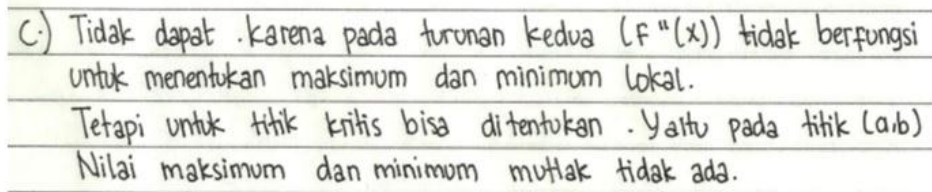 C.) Tidak dapat . karena pada turunan kedua (F"(x)) tidak berfungsi
untuk menentukan maksimum dan minimum lokal.
Tetapi untuk titik kritis bisa ditentukan . Yaitu pada titik (a,b)
Nilai maksimum dan minimum mutlak tidak ada.